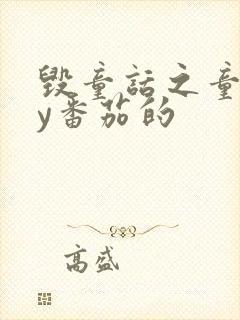 毁童话之童
y番茄的
高盛